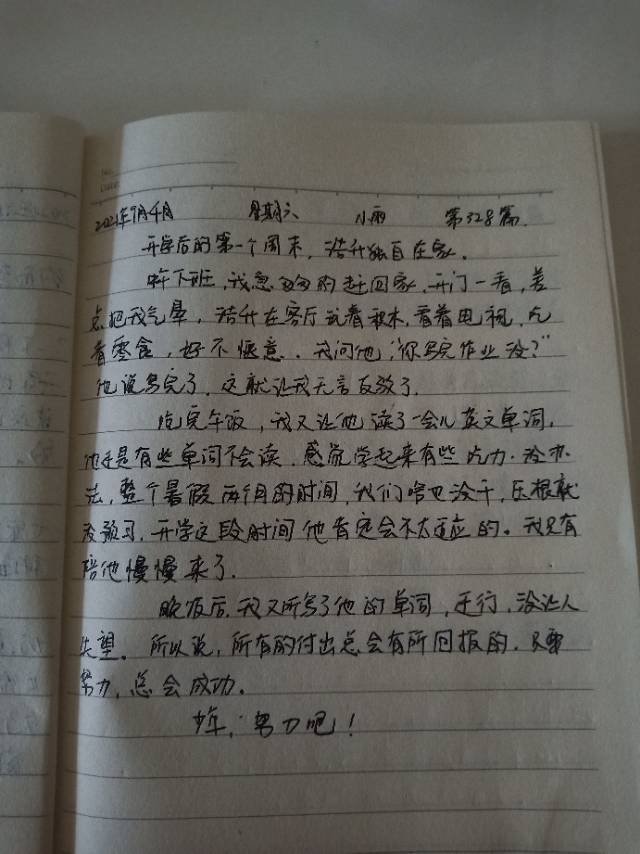 2021年9月4日 星期六 小雨 第328篇.
开学后的第一个周末，浩升独自在家。
中午下班，我急匆匆的赶回家，开门一看，差
点把我气晕，浩升在客厅玩着积木，看着电视，吃
着零食，好不惬意．我问他，"你写完作业没？"
他说写完了，这就让我无言反驳了．
吃完午饭，我又让他读了一会儿英文单词，
他还是有些单词不会读．感觉学起来有些吃力．没办
法，整个暑假两个月的时间，我们啥也没干，压根就
没预习，开学这段时间他肯定会不太适应的。我只有
陪他慢慢来了．
晚饭后，我又听写了他的单词，还行，没让人
失望。所以说，所有的付出总会有所回报的．只要
努力，总会成功。
少年，努力吧！